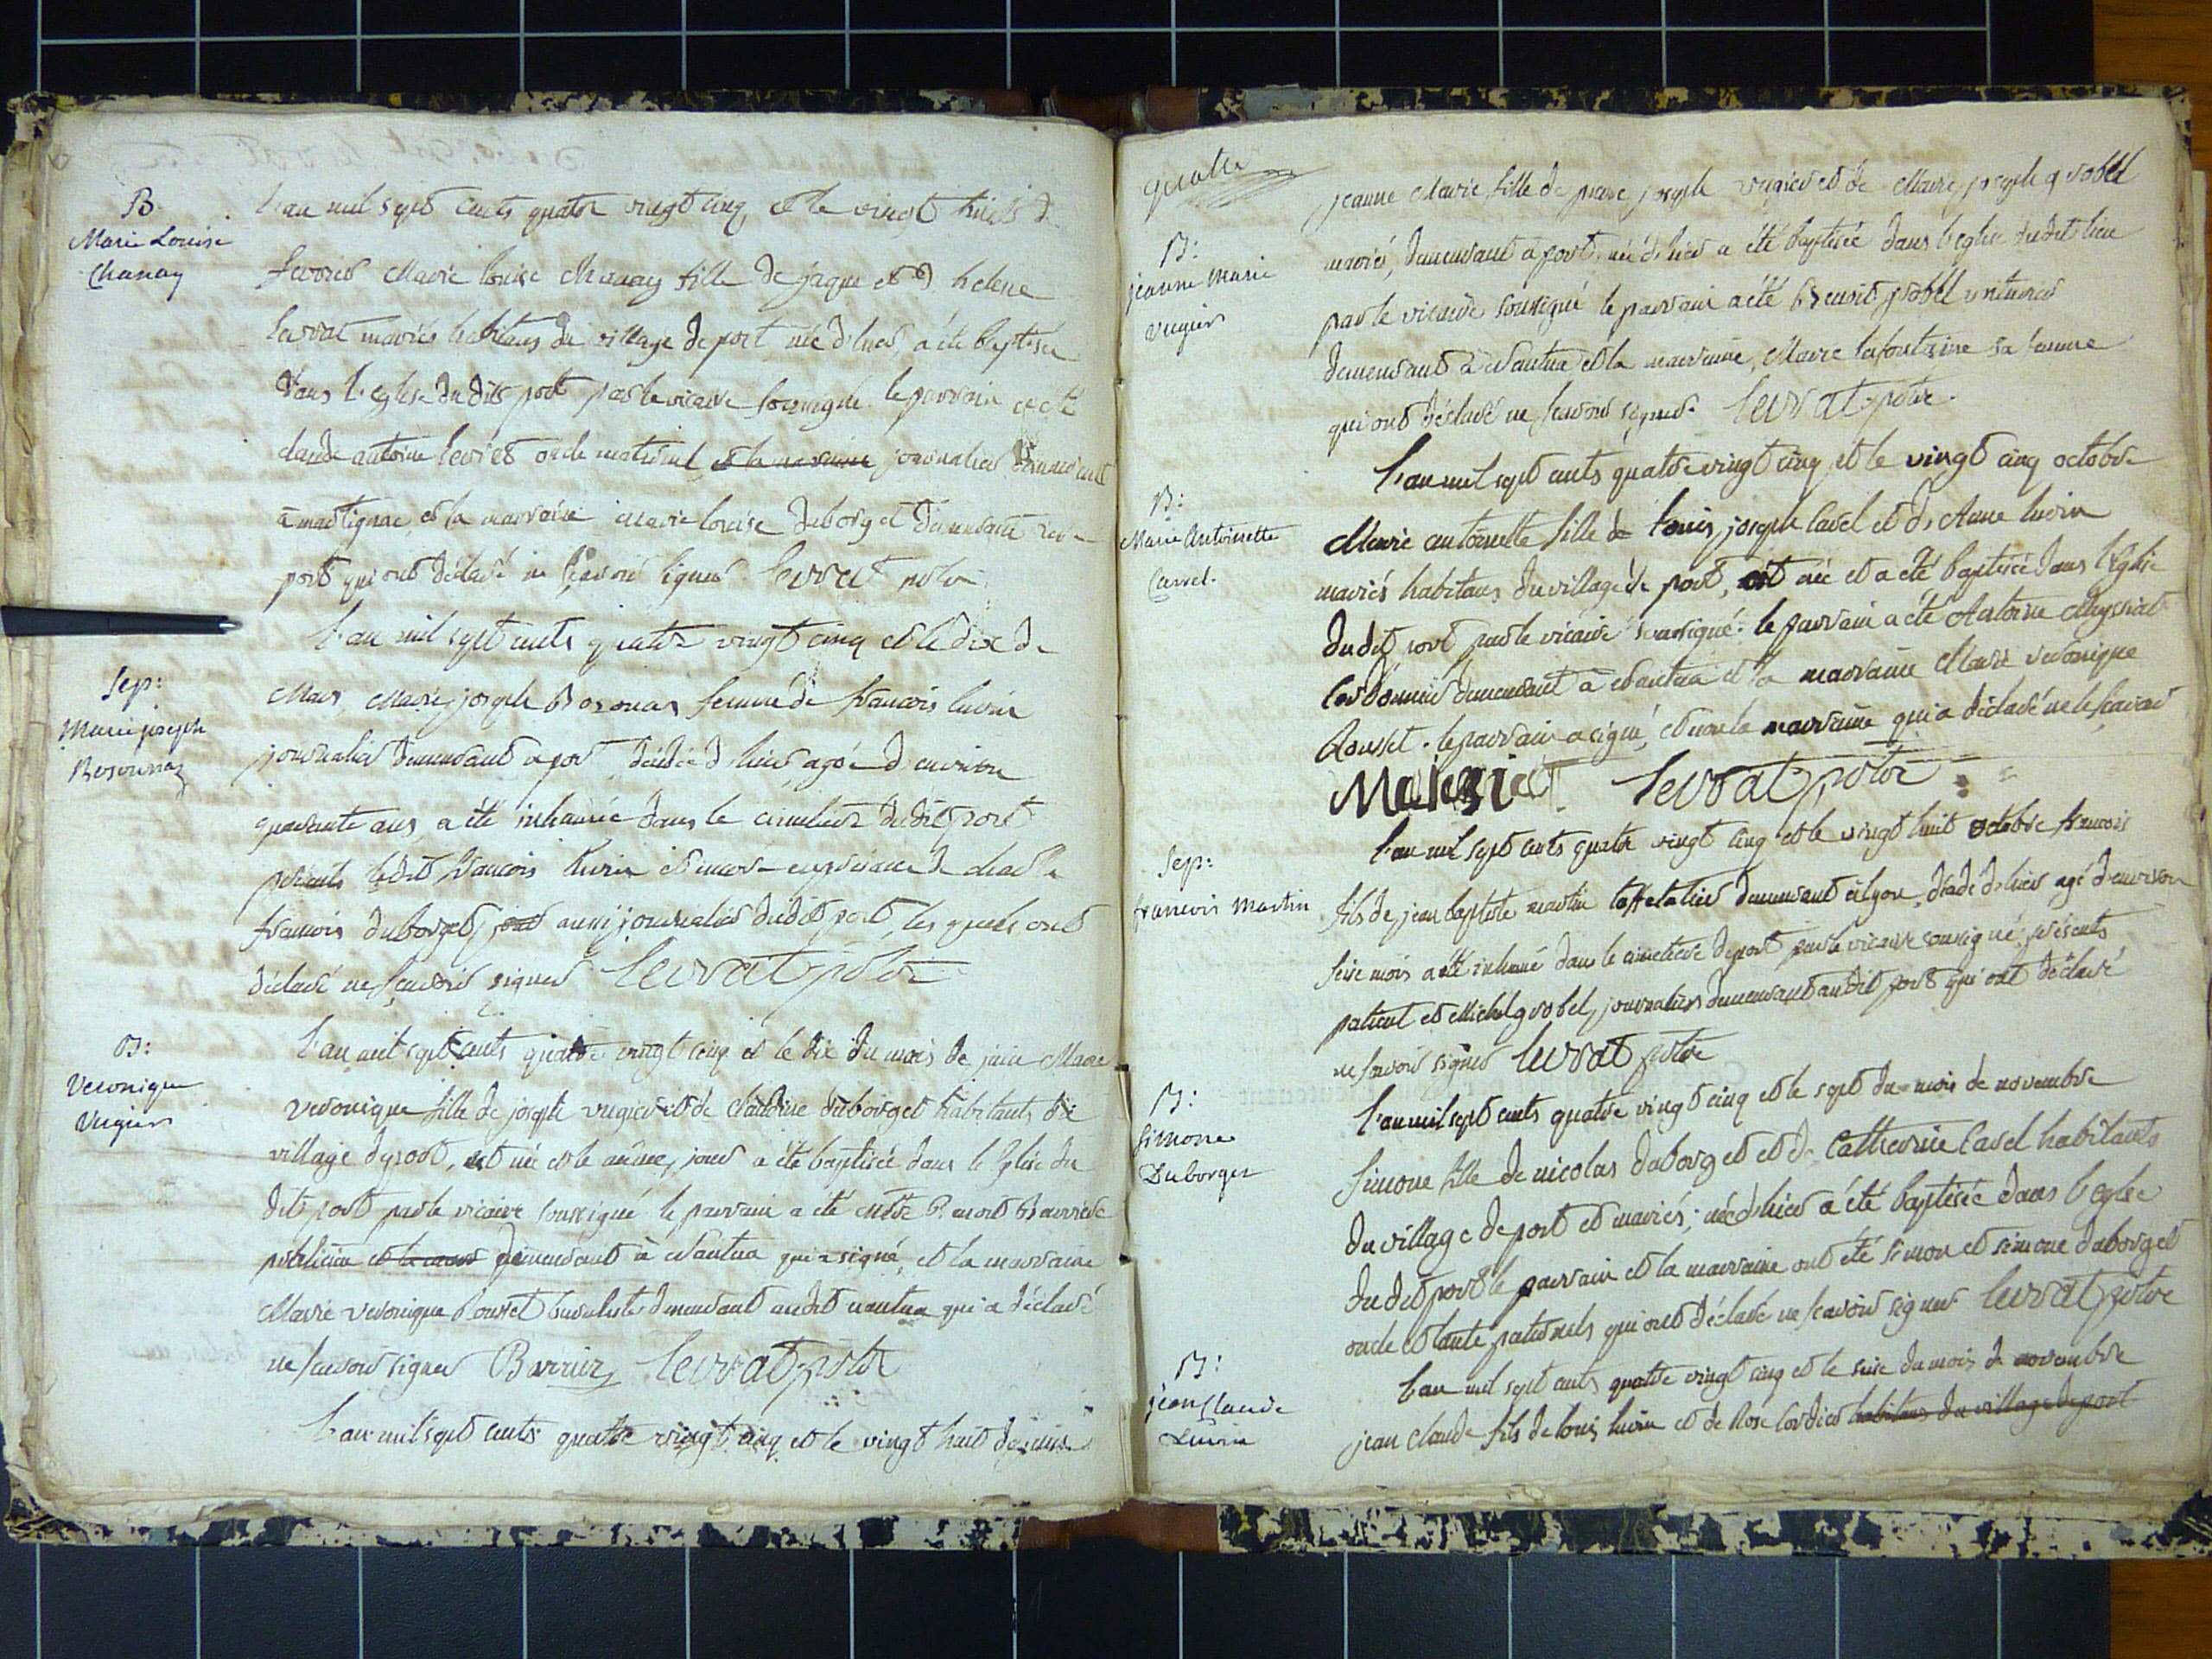 B
Marie Louise
Chanay
L'an mil sept cents quatre vingt cinq et le vingt huit de
fevrier Marie louise Chanay fille de jaque et d helene
levrat mariés habitans du village de port née d'hier, a été baptisée
dans l'eglise du dit port par le vicaire soussigné le parrain a été
claude antoine oncle maternel et la marraine journalier demeurant
a martignac, et la marraine Marie louise duborget demeurante
port qui ont déclaré ne sçavoir signer levrat ptre
L'an mil sept cents quatre vingt cinq et le dix de
Sep:
Marie joseph
Bosonnaz
Mars, Marie joseph Bosonas femme de francois luvin
journalier demeurant a port décédée d hier, agée d environ
quarante ans, a été inhumée dans le cimetiere du dit port
présents ledit francois luvin et encore en présence de
francois duborget, aussi journalier dudit port, les quels ont
déclaré ne sçavoir signer levrat ptre
B:
Veronique
Vugier
L'an mil sept cents quatre vingt cinq et le dix du mois de juin Marie
veronique fille de joseph vugier et de Claudine duborget habitants du
village de port, est née et le même jour a été baptisée dans l'eglise du
dit port par le vicaire soussigné le parrain a été
praticien demeurant à Nantua qui a signé, et la marraine
Marie veronique Rousset demeurant audit nantua qui a déclaré
ne sçavoir signer Barrier levrat ptre
L'an mil sept cents quatre vingt cinq et le vingt huit de juin
quatre
B:
jeanne Marie
Vugier
jeanne Marie, fille de pierre joseph vugier et de Marie joseph gvobel
mariés, demeurant a port née d'hier a été baptisée dans l'eglise dudit lieu
par le vicaire soussigné le parrain a été Benoit voiturier
demeurant à Nantua et la marraine, Marie lafontaine sa femme
qui ont déclaré ne sçavoir signer. levrat ptre.
L'an mil sept cents quatre vingt cinq et le vingt cinq octobre
B:
Marie Antoinette
Carrel.
Marie antoinette fille de louis joseph Carel et d Anne luvin
mariés habitans du village de port, est née et a été baptisée dans l'Eglise
du dit port par le vicaire soussigné: le parrain a été Antoine Meyssiat
cordonnier demeurant à Nantua et la marraine Marie veronique
Rousset. le parrain a signé, et non la marraine qui a déclaré ne le sçavoir
levrat ptre
L'an mil sept cents quatre vingt cinq et le vingt huit octobre francois
Sep:
francois Martin
fils de jean baptiste martin taffetatier demeurant à lyon, décédé d'hier agé d'environ
seise mois a été inhumé dans le cimetiere de port par le vicaire soussigné, présents
et Michel gvobel, journaliers demeurant audit port qui ont déclaré
ne sçavoir signer levrat ptre
B:
Simone
Duborget
L'an mil sept cents quatre vingt cinq et le sept du mois de novembre
Simone fille de nicolas duborget et de Catherine Carel habitants
du village de port et mariés; née d'hier a été baptisée dans l'eglise
du dit port le parrain et la marraine ont été simon et simone duborget
oncle et tante paternels qui ont déclaré ne sçavoir signer levrat ptre
B:
jean Claude
Luvin
L'an mil sept cents quatre vingt cinq et le seise du mois de novembre
jean claude fils de louis luvin et de Rose cordier habitans du village de port